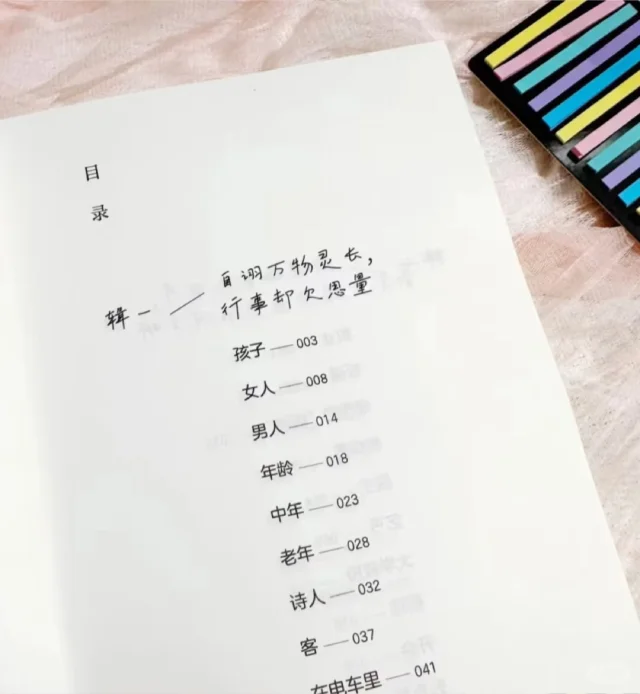 目
录
辑一 —— 自诩万物灵长，
行事却欠思量
孩子——003
女人——008
男人——014
年龄——018
中年——023
老年——028
诗人——032
客——037
在电车里——041